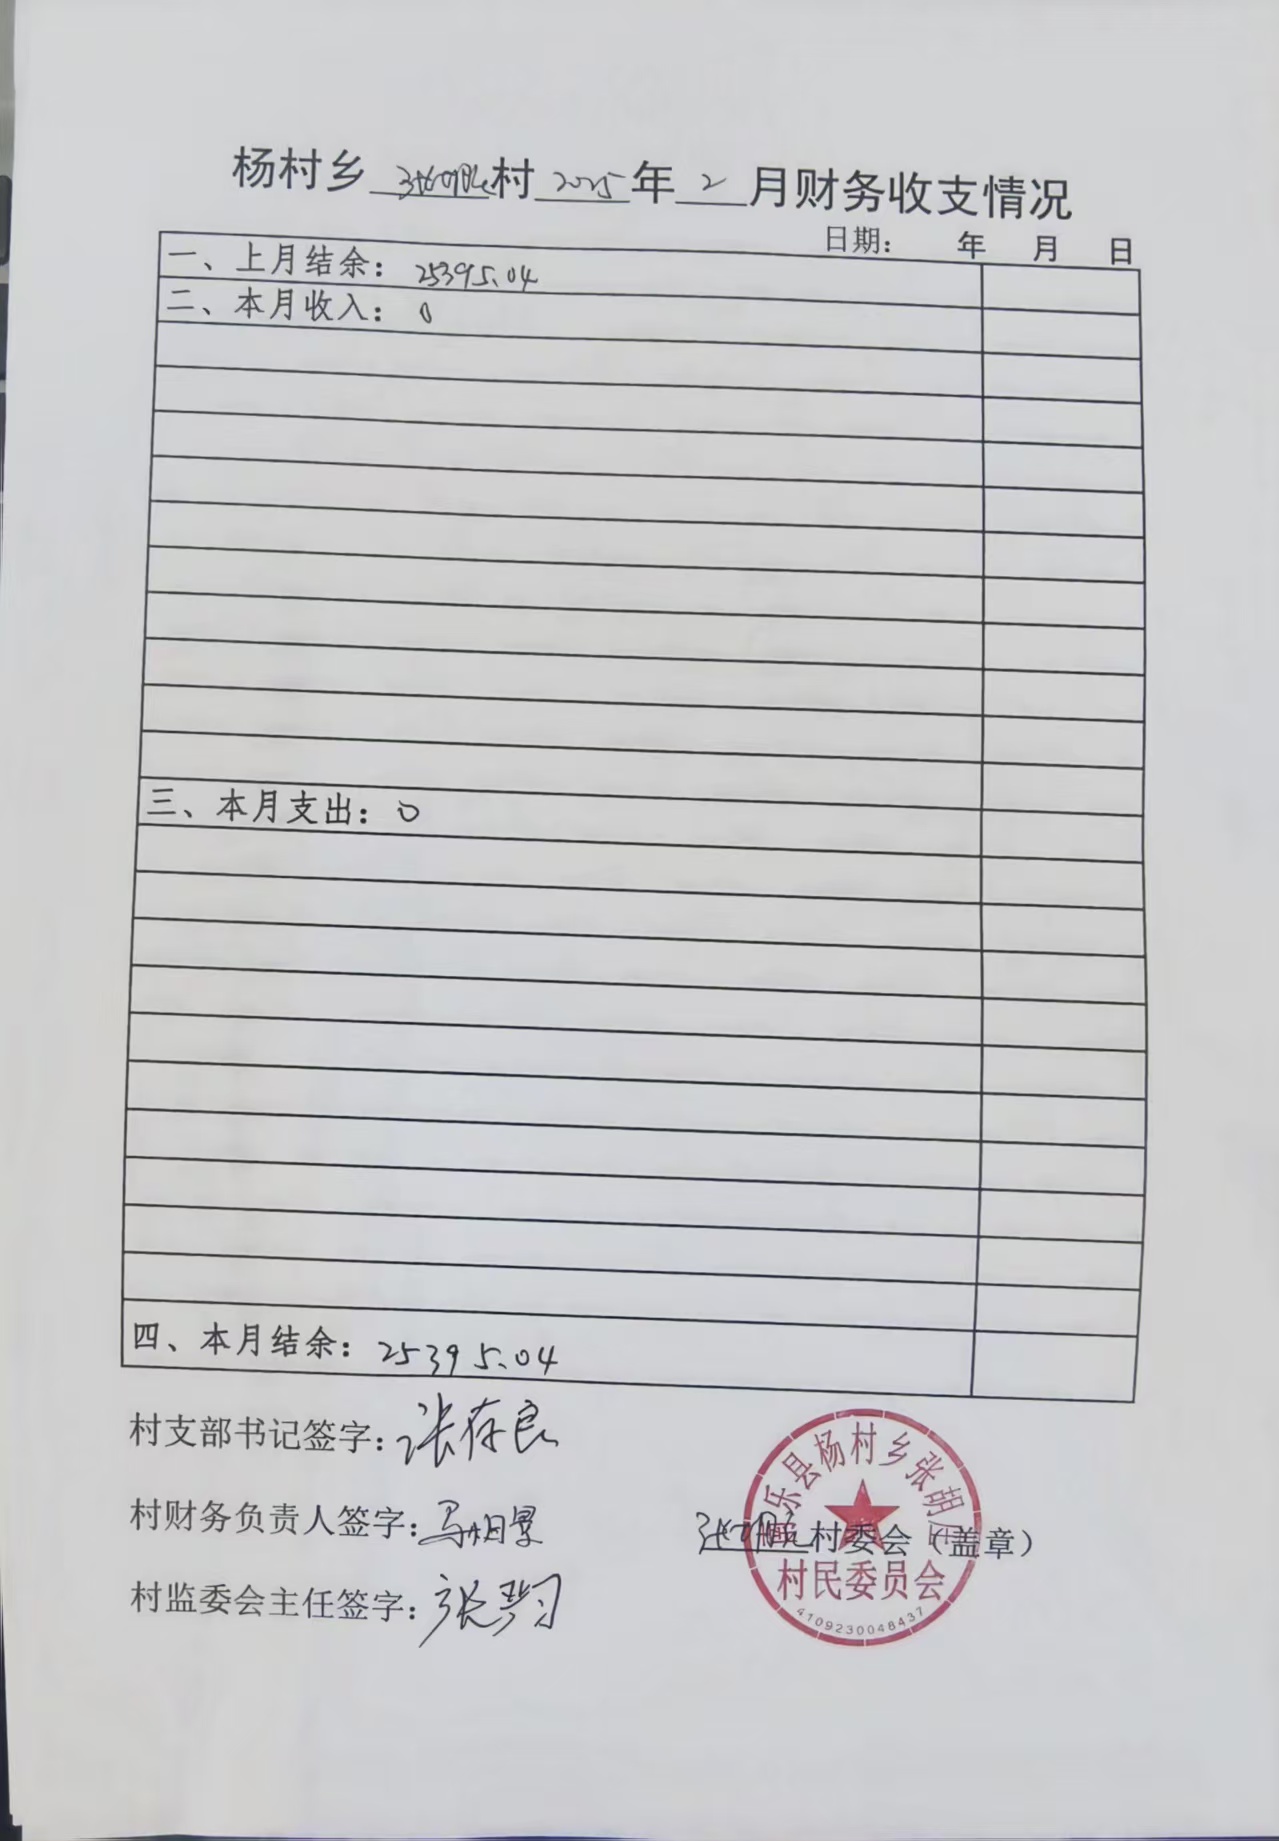 杨村乡张胡庄村2025年2月财务收支情况
日期： 年 月 日
一、上月结余：25395.04
二、本月收入：0
三、本月支出：0
四、本月结余：25395.04
村支部书记签字：张存良
村财务负责人签字：
村监委会主任签字：张
张胡庄村委会（盖章）
南乐县杨村乡张胡庄
村民委员会
4109230048437